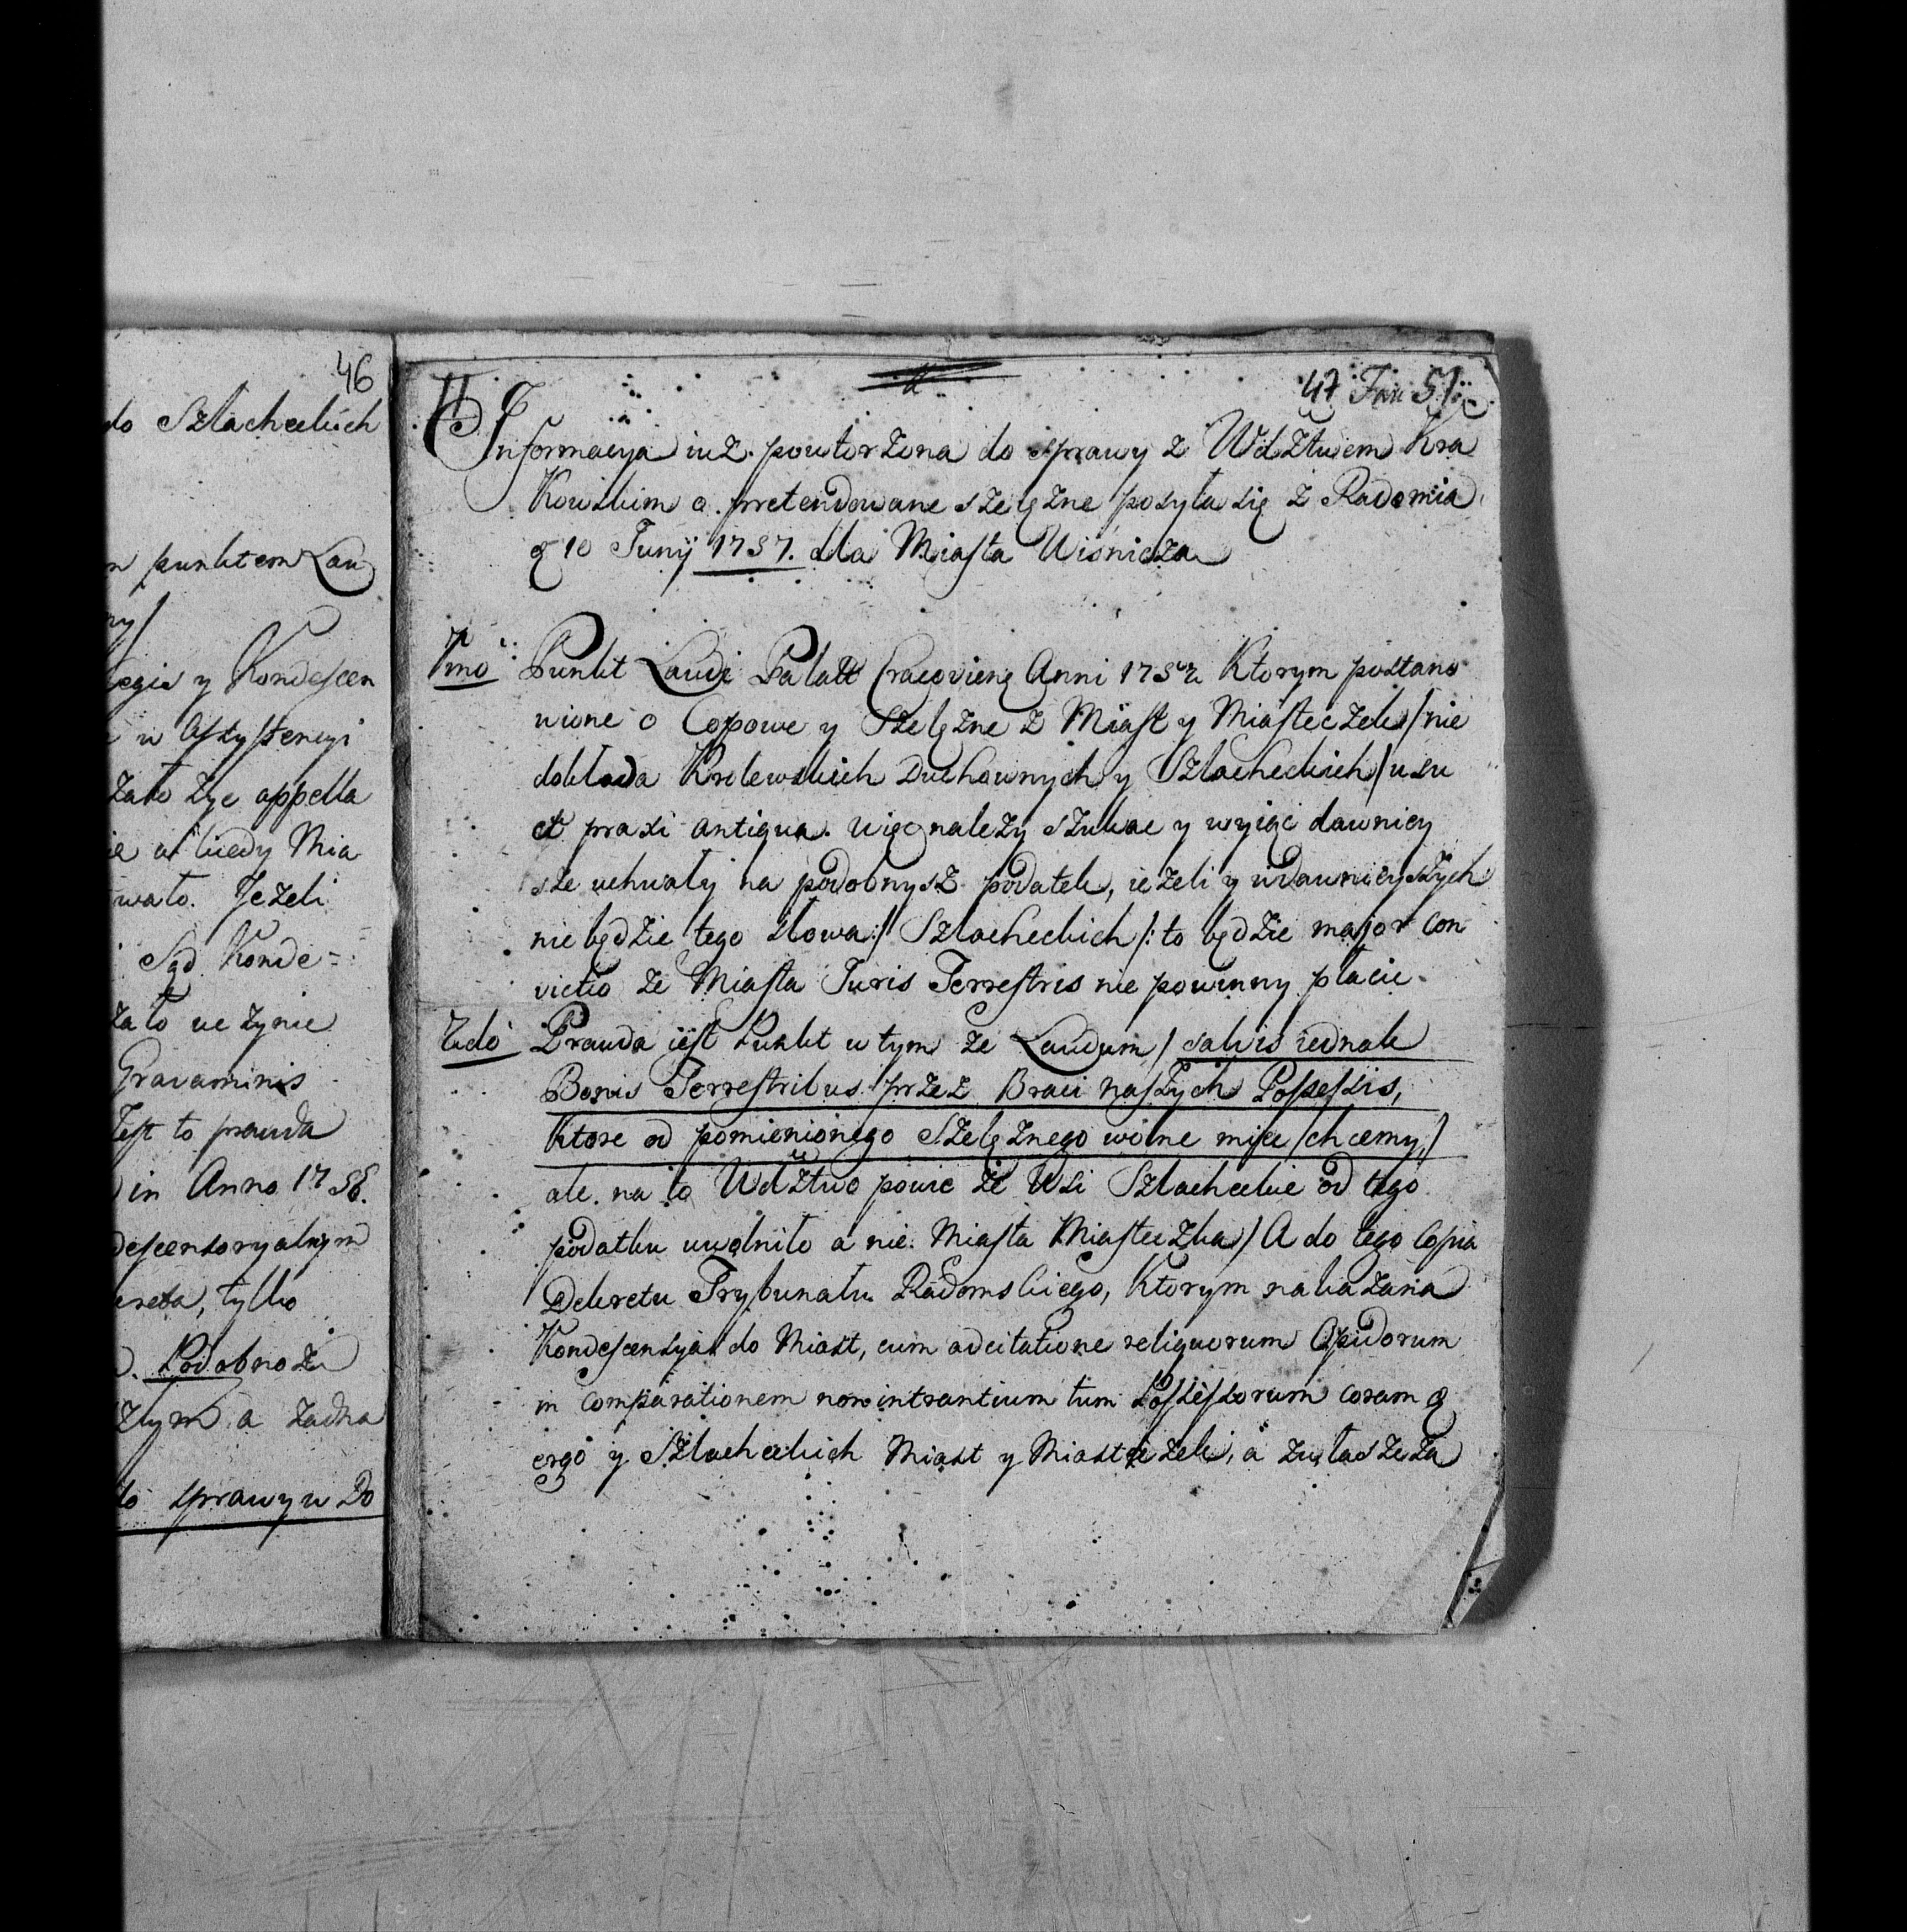 46
do Szlacheckich
punktem Lau
ny/
legis y Kondescen
w Assystencyi
zało zyc appella
ie w kiedy Mia
wało. Jeżeli
Sąd Konde=
zało uczynie
Gravaminis
Jest to prawda
in Anno 1756.
descensoryalnym
creta, tylko
Podobno że
a żadna
do sprawy w Do
47 51
Informacya iuż powtorzona do sprawy z Wdztwem Kra
kowskim o pretendowane szelęzne posyła się z Radomia
10 Junij 1757. dla Miasta Wisnicza
1mo Punkt Laudi Palatt Cracovien Anni 1752 Ktorym postano
wione o Copowe y Szelęzne z Miast y Miasteczek/nie
dokłada Krolewskich Duchownych y Szlacheckich/usu
et praxi antiqua. więc należy szukac y wyiąc dawniey
sze uchwały na podobnysz podatek, ieżeli y w dawnieyszych
nie będzie tego słowa:/ Szlacheckich/: to będzie major con
victio że Miasta Juris Terrestris nie powinny płacic.
2do Prawda iest Punkt w tym że Laudum/ salvis iednak
Bonis Terrestribus przez Braci naszych Possessis,
ktore od pomienionego Szelęznego wolne miec/chcemy,/
ale na to Wdztwo powie że Wsi Szlacheckie od tego
podatku uwolniło a nie Miasta Miasteczka/ A do tego Copia
Dekretu Trybunału Radomskiego, Ktorym nakazana
Kondescensya do Miast, cum adcitatione reliquorum Opidorum
in comparationem non intrantium tum Possessorum coram q
ergo y Szlacheckich Miast y Miasteczek, a zwłaszcza